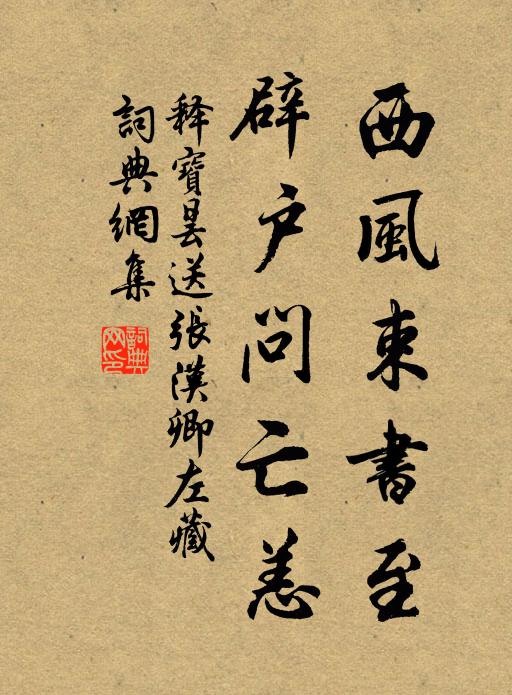 西風東書至
辟户問亡恙
释寶曇送張漢卿左藏
詞典網集
詞典网印